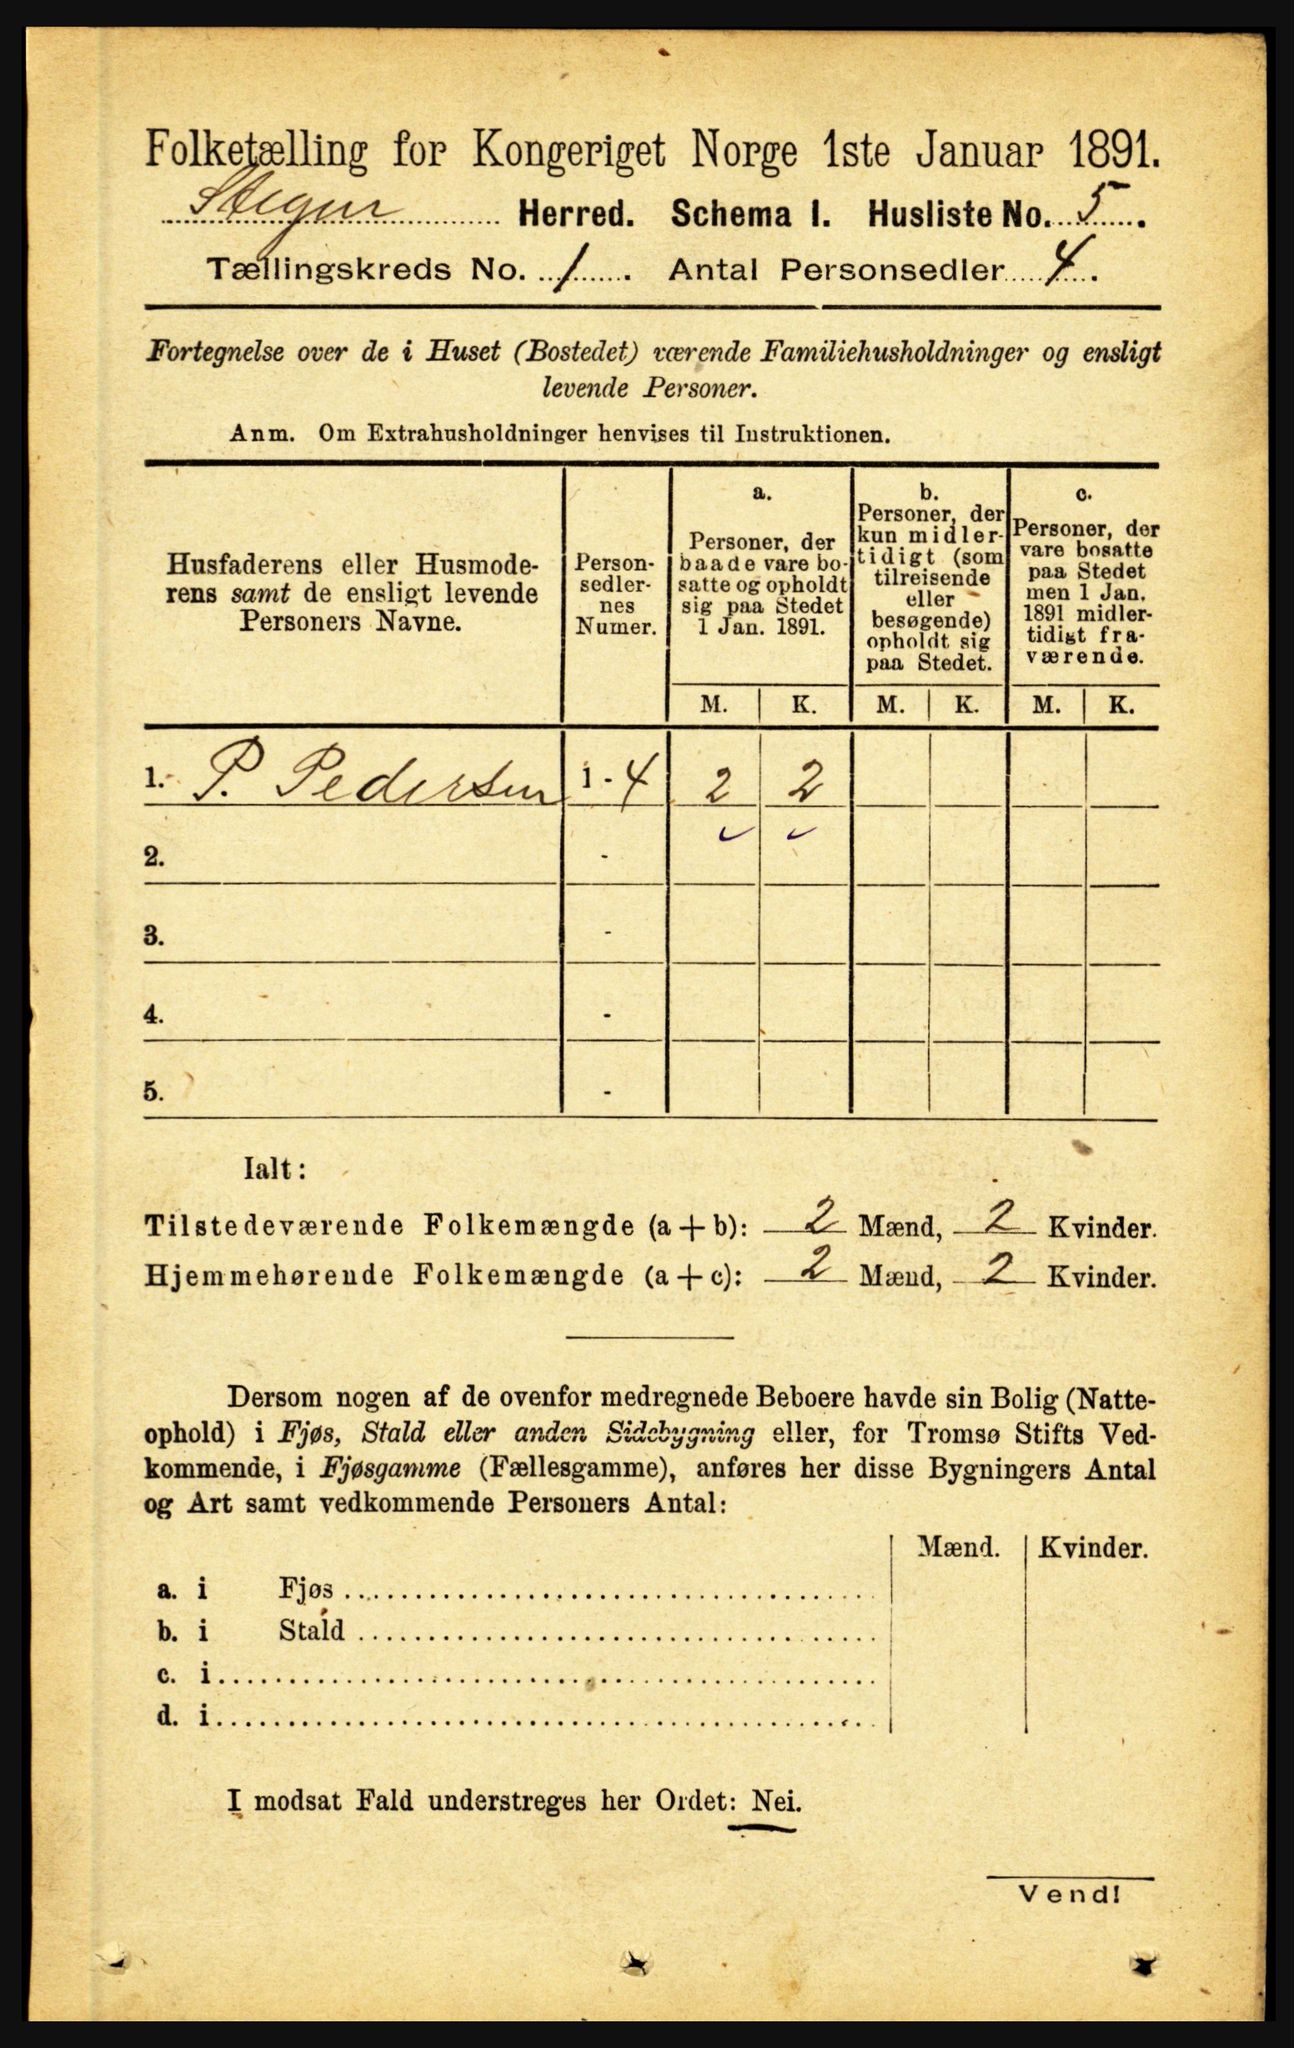 Folketælling for Kongeriget Norge 1ste Januar 1891.
Stegen Herred. Schema I. Husliste No. 5.
Tællingskreds No. 1. Antal Personsedler 4.
Fortegnelse over de i Huset (Bostedet) værende Familiehusholdninger og ensligt
levende Personer.
Anm. Om Extrahusholdninger henvises til Instruktionen.
Husfaderens eller Husmode-
rens samt de ensligt levende
Personers Navne.
Person-
sedler-
nes
Numer.
a.
Personer, der
baade vare bo-
satte og opholdt
sig paa Stedet
1 Jan. 1891.
b.
Personer, der
kun midler-
tidigt (som
tilreisende
eller
besøgende)
opholdt sig
paa Stedet.
c.
Personer, der
vare bosatte
paa Stedet
men 1 Jan.
1891 midler-
tidigt fra-
værende.
M. K. M. K. M. K.
1. P. Pedersen 1 - 4 2 2
2. -
3. -
4. -
5. -
Ialt:
Tilstedeværende Folkemængde (a + b): 2 Mænd, 2 Kvinder.
Hjemmehørende Folkemængde (a + c): 2 Mænd, 2 Kvinder.
Dersom nogen af de ovenfor medregnede Beboere havde sin Bolig (Natte-
ophold) i Fjøs, Stald eller anden Sidebygning eller, for Tromsø Stifts Ved-
kommende, i Fjøsgamme (Fællesgamme), anføres her disse Bygningers Antal
og Art samt vedkommende Personers Antal:
Mænd. Kvinder.
a. i Fjøs
b. i Stald
c. i
d. i
I modsat Fald understreges her Ordet: Nei.
Vend!